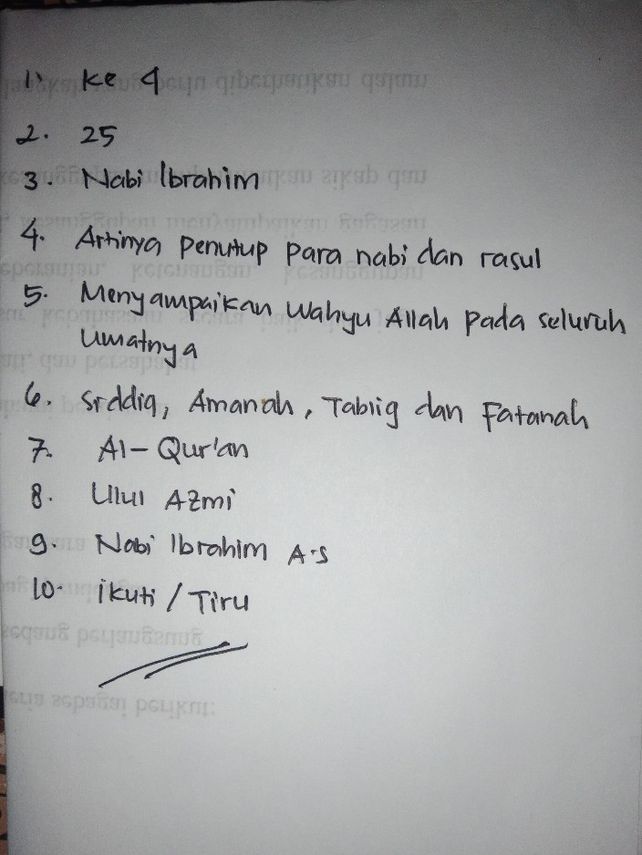 1) Ke 4
2. 25
3. Nabi Ibrahim
4. Artinya Penutup Para nabi dan rasul
5. Menyampaikan Wahyu Allah Pada seluruh
Umatnya
6. Siddiq, Amanah, Tablig dan Fatanah
7. Al-Qur'an
8. Ulul Azmi
9. Nabi Ibrahim A.S
10. ikuti / Tiru